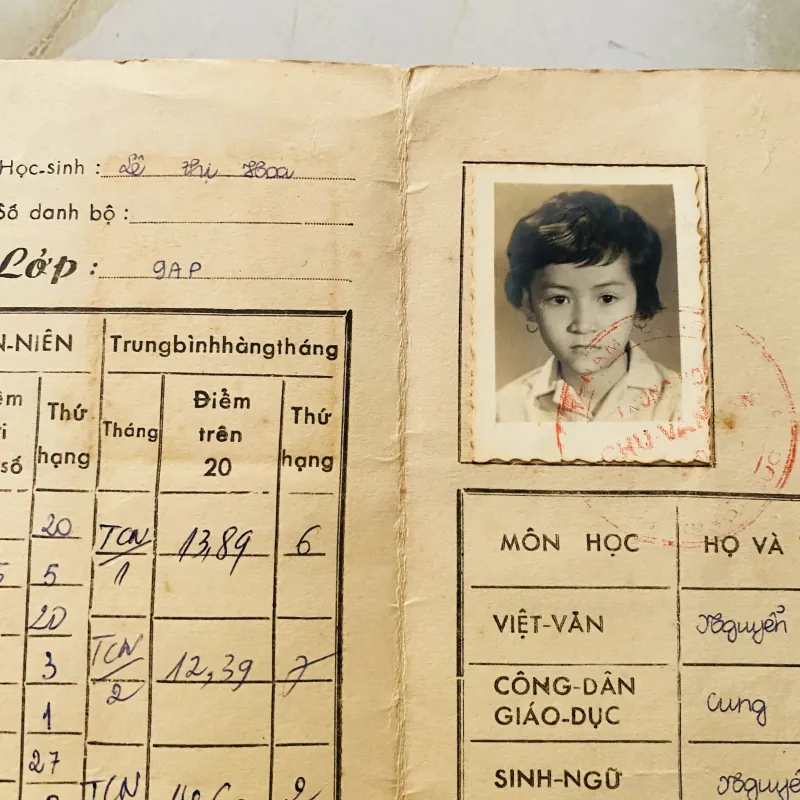 Học-sinh : Lê thị Hoa
Số danh bộ :
Lớp : 9AP
N-NIÊN
Trungbìnhhàngtháng
Thứ hạng
Tháng
Điểm trên 20
Thứ hạng
số
20
TCN/1 13,89 6
5
20
TCN/2 12,39 7
3
1
27
TCN
CHU VĂN
MÔN HỌC
HỌ VÀ
VIỆT-VĂN
Nguyễn
CÔNG-DÂN
GIÁO-DỤC
Cung
SINH-NGỮ
Nguyễ